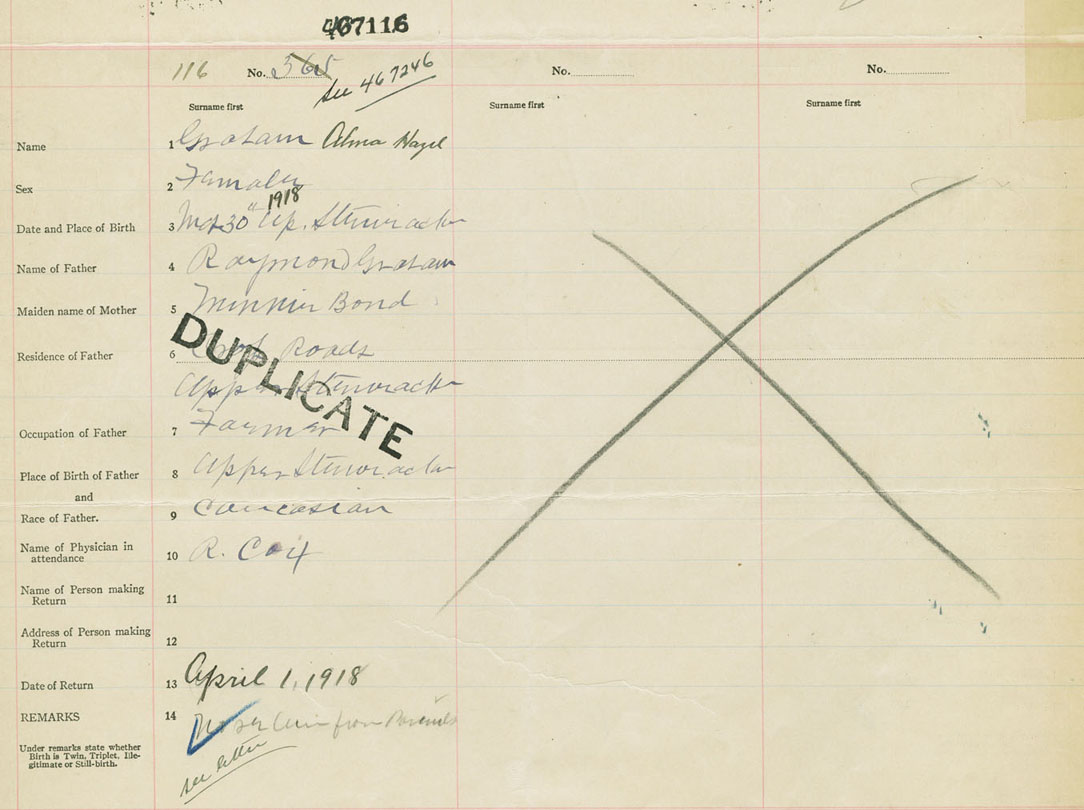 467116
116 No. 365 No. No.
see 467246
Surname first Surname first Surname first
Name 1 Graham Alma Hazel
Sex 2 Female
1918
Date and Place of Birth 3 Mch 30" Up. Stewiacke
Name of Father 4 Raymond Graham
Maiden name of Mother 5 Minnie Bond
Residence of Father 6 Roads
Upper Stewiacke
DUPLICATE
Occupation of Father 7 Farmer
Place of Birth of Father 8 Upper Stewiacke
and
Race of Father. 9 Caucasian
Name of Physician in
attendance 10 R. Cox
Name of Person making
Return 11
Address of Person making
Return 12
Date of Return 13 April 1, 1918
REMARKS 14 from Parents
Under remarks state whether
Birth is Twin, Triplet, Ille-
gitimate or Still-birth.
see letter